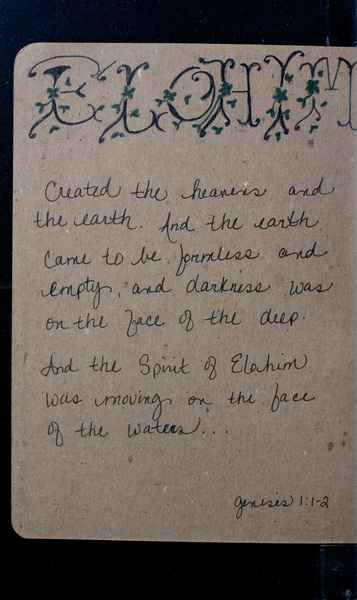 ELOHIM
Created the heavens and
the earth. And the earth
came to be formless and
empty, and darkness was
on the face of the deep.
And the Spirit of Elohim
was moving on the face
of the waters...
genesis 1:1-2